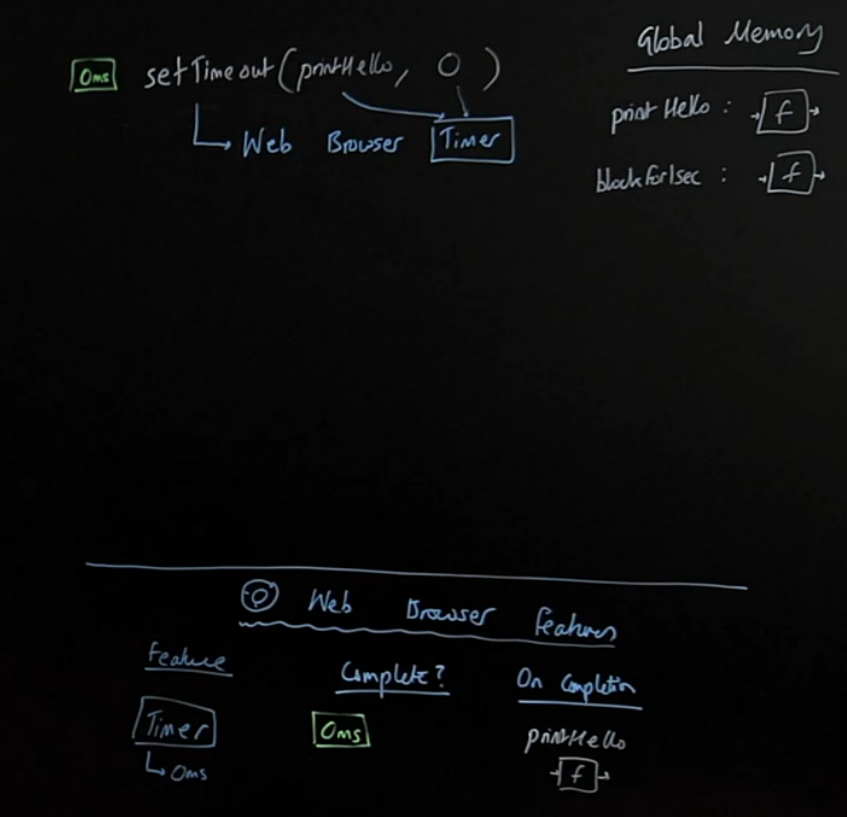 Global Memory
0ms setTimeout(printHello, 0)
Web Browser Timer
printHello : f
blockfor1sec : f
Web Browser Features
Feature Complete? On Completion
Timer 0ms printHello
0ms f